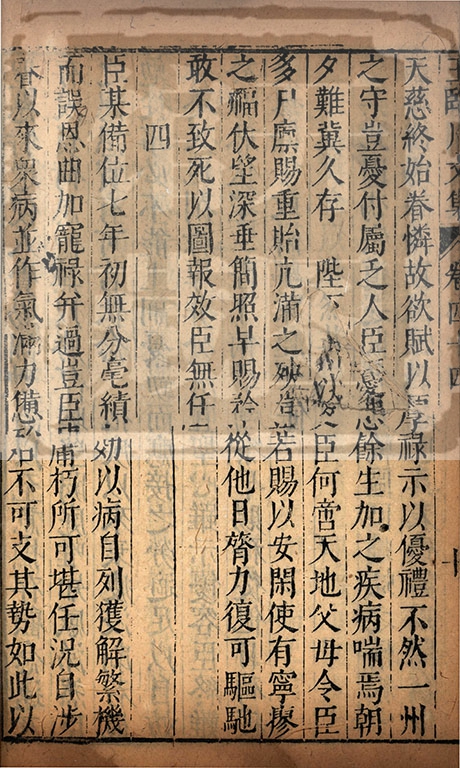 王臨川文集 卷四十四 十
天慈終始眷憐故欲賦以厚祿示以優禮不然一州
之守豈憂付屬乏人臣憂患餘生加之疾病喘焉朝
夕難冀久存 陛下以臣何啻天地父母令臣
多尸廩賜重貽亢滿之殃豈若賜以安閑使有寧瘳
之福伏望深垂簡照早賜矜從他日膂力復可驅馳
敢不致死以圖報效臣無任
四
臣某備位七年初無分毫績効以病自列獲解繁機
而誤恩曲加寵祿并過豈臣庸朽所可堪任況自涉
春以來衆病並作氣滿力憊殆不可支其勢如此以